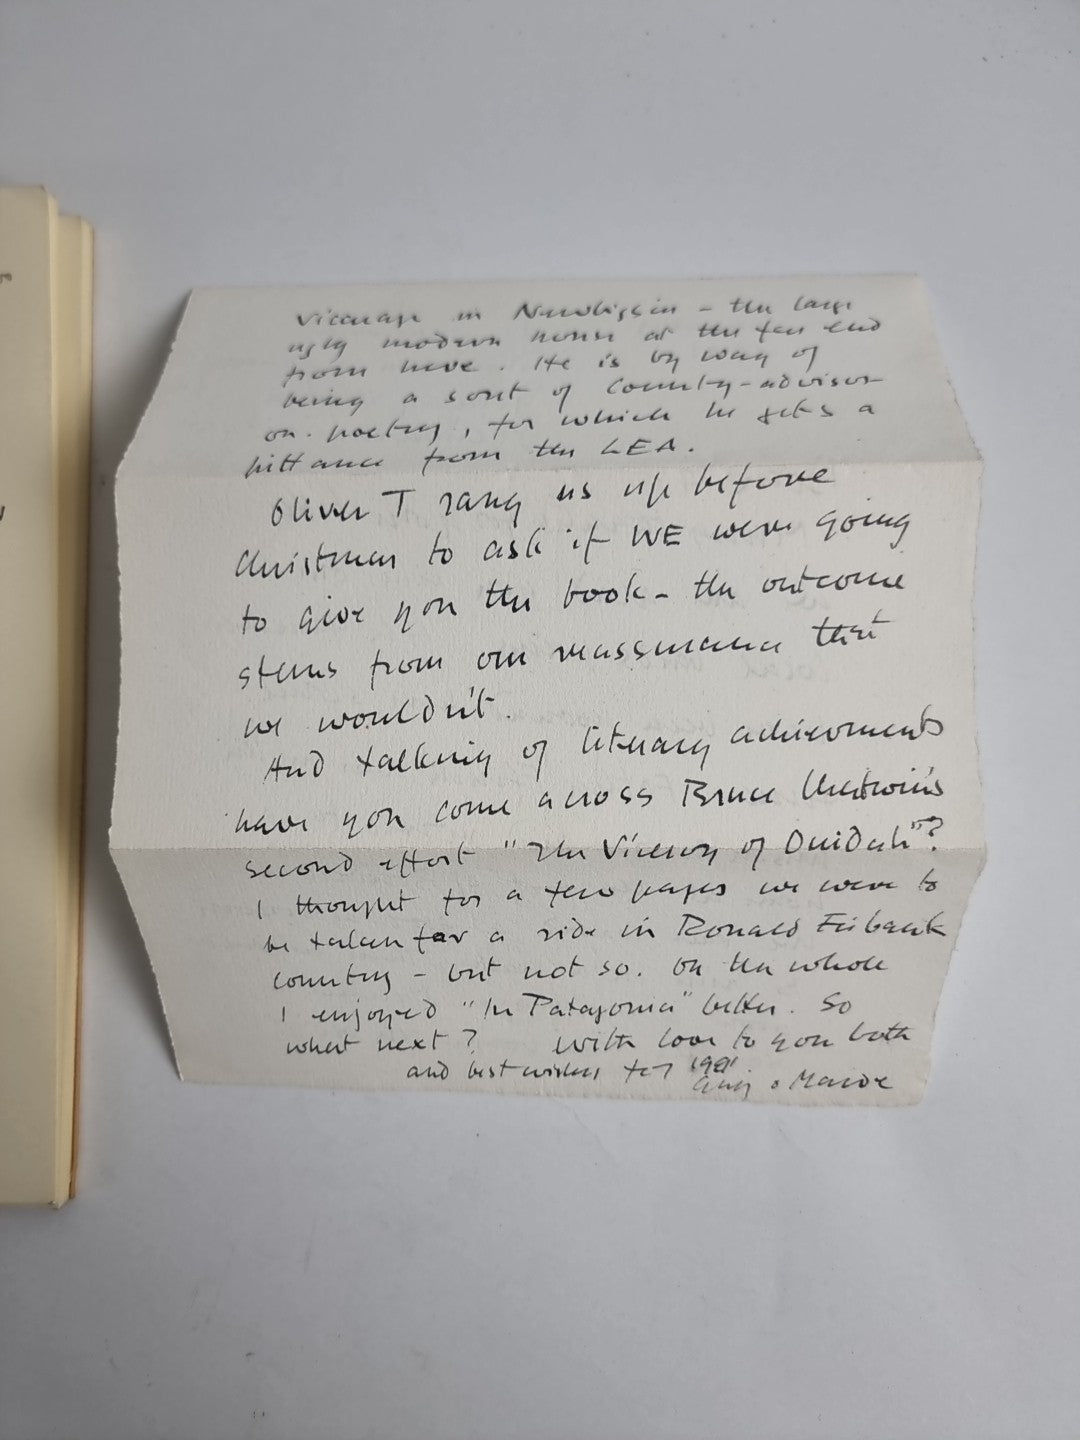 Vicarage in Newbiggin - the large
ugly modern house at the far end
from here. He is by way of
being a sort of County-advisor
on poetry, for which he gets a
pittance from the LEA.
Oliver T rang us up before
Christmas to ask if WE were going
to give you the book - the outcome
stems from our reassurance that
we wouldn't.
And talking of literary achievements
have you come across Bruce Chatwin's
second effort "The Viceroy of Ouidah"?
I thought for a few pages we were to
be taken for a ride in Ronald Firbank
country - but not so. On the whole
I enjoyed "In Patagonia" better. So
what next? With love to you both
and best wishes for 1981.